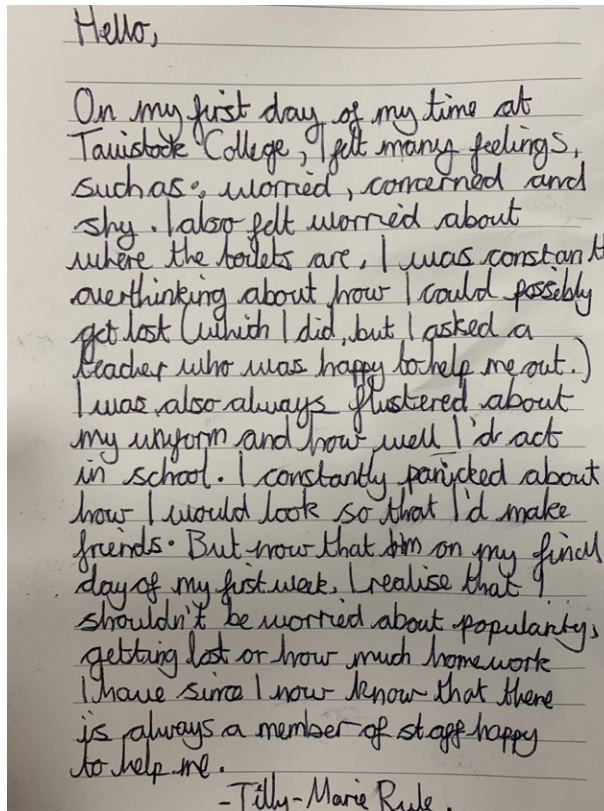 Hello,
On my first day of my time at
Tavistock College, I felt many feelings,
such as, worried, concerned and
shy. I also felt worried about
where the toilets are, I was constant
overthinking about how I could possibly
get lost (which I did, but I asked a
teacher who was happy to help me out.)
I was also always flustered about
my uniform and how well I'd act
in school. I constantly panicked about
how I would look so that I'd make
friends. But now that I'm on my final
day of my first week, I realise that I
shouldn't be worried about popularity,
getting lost or how much homework
I have since I now know that there
is always a member of staff happy
to help me.
-Tilly-Marie Rule.